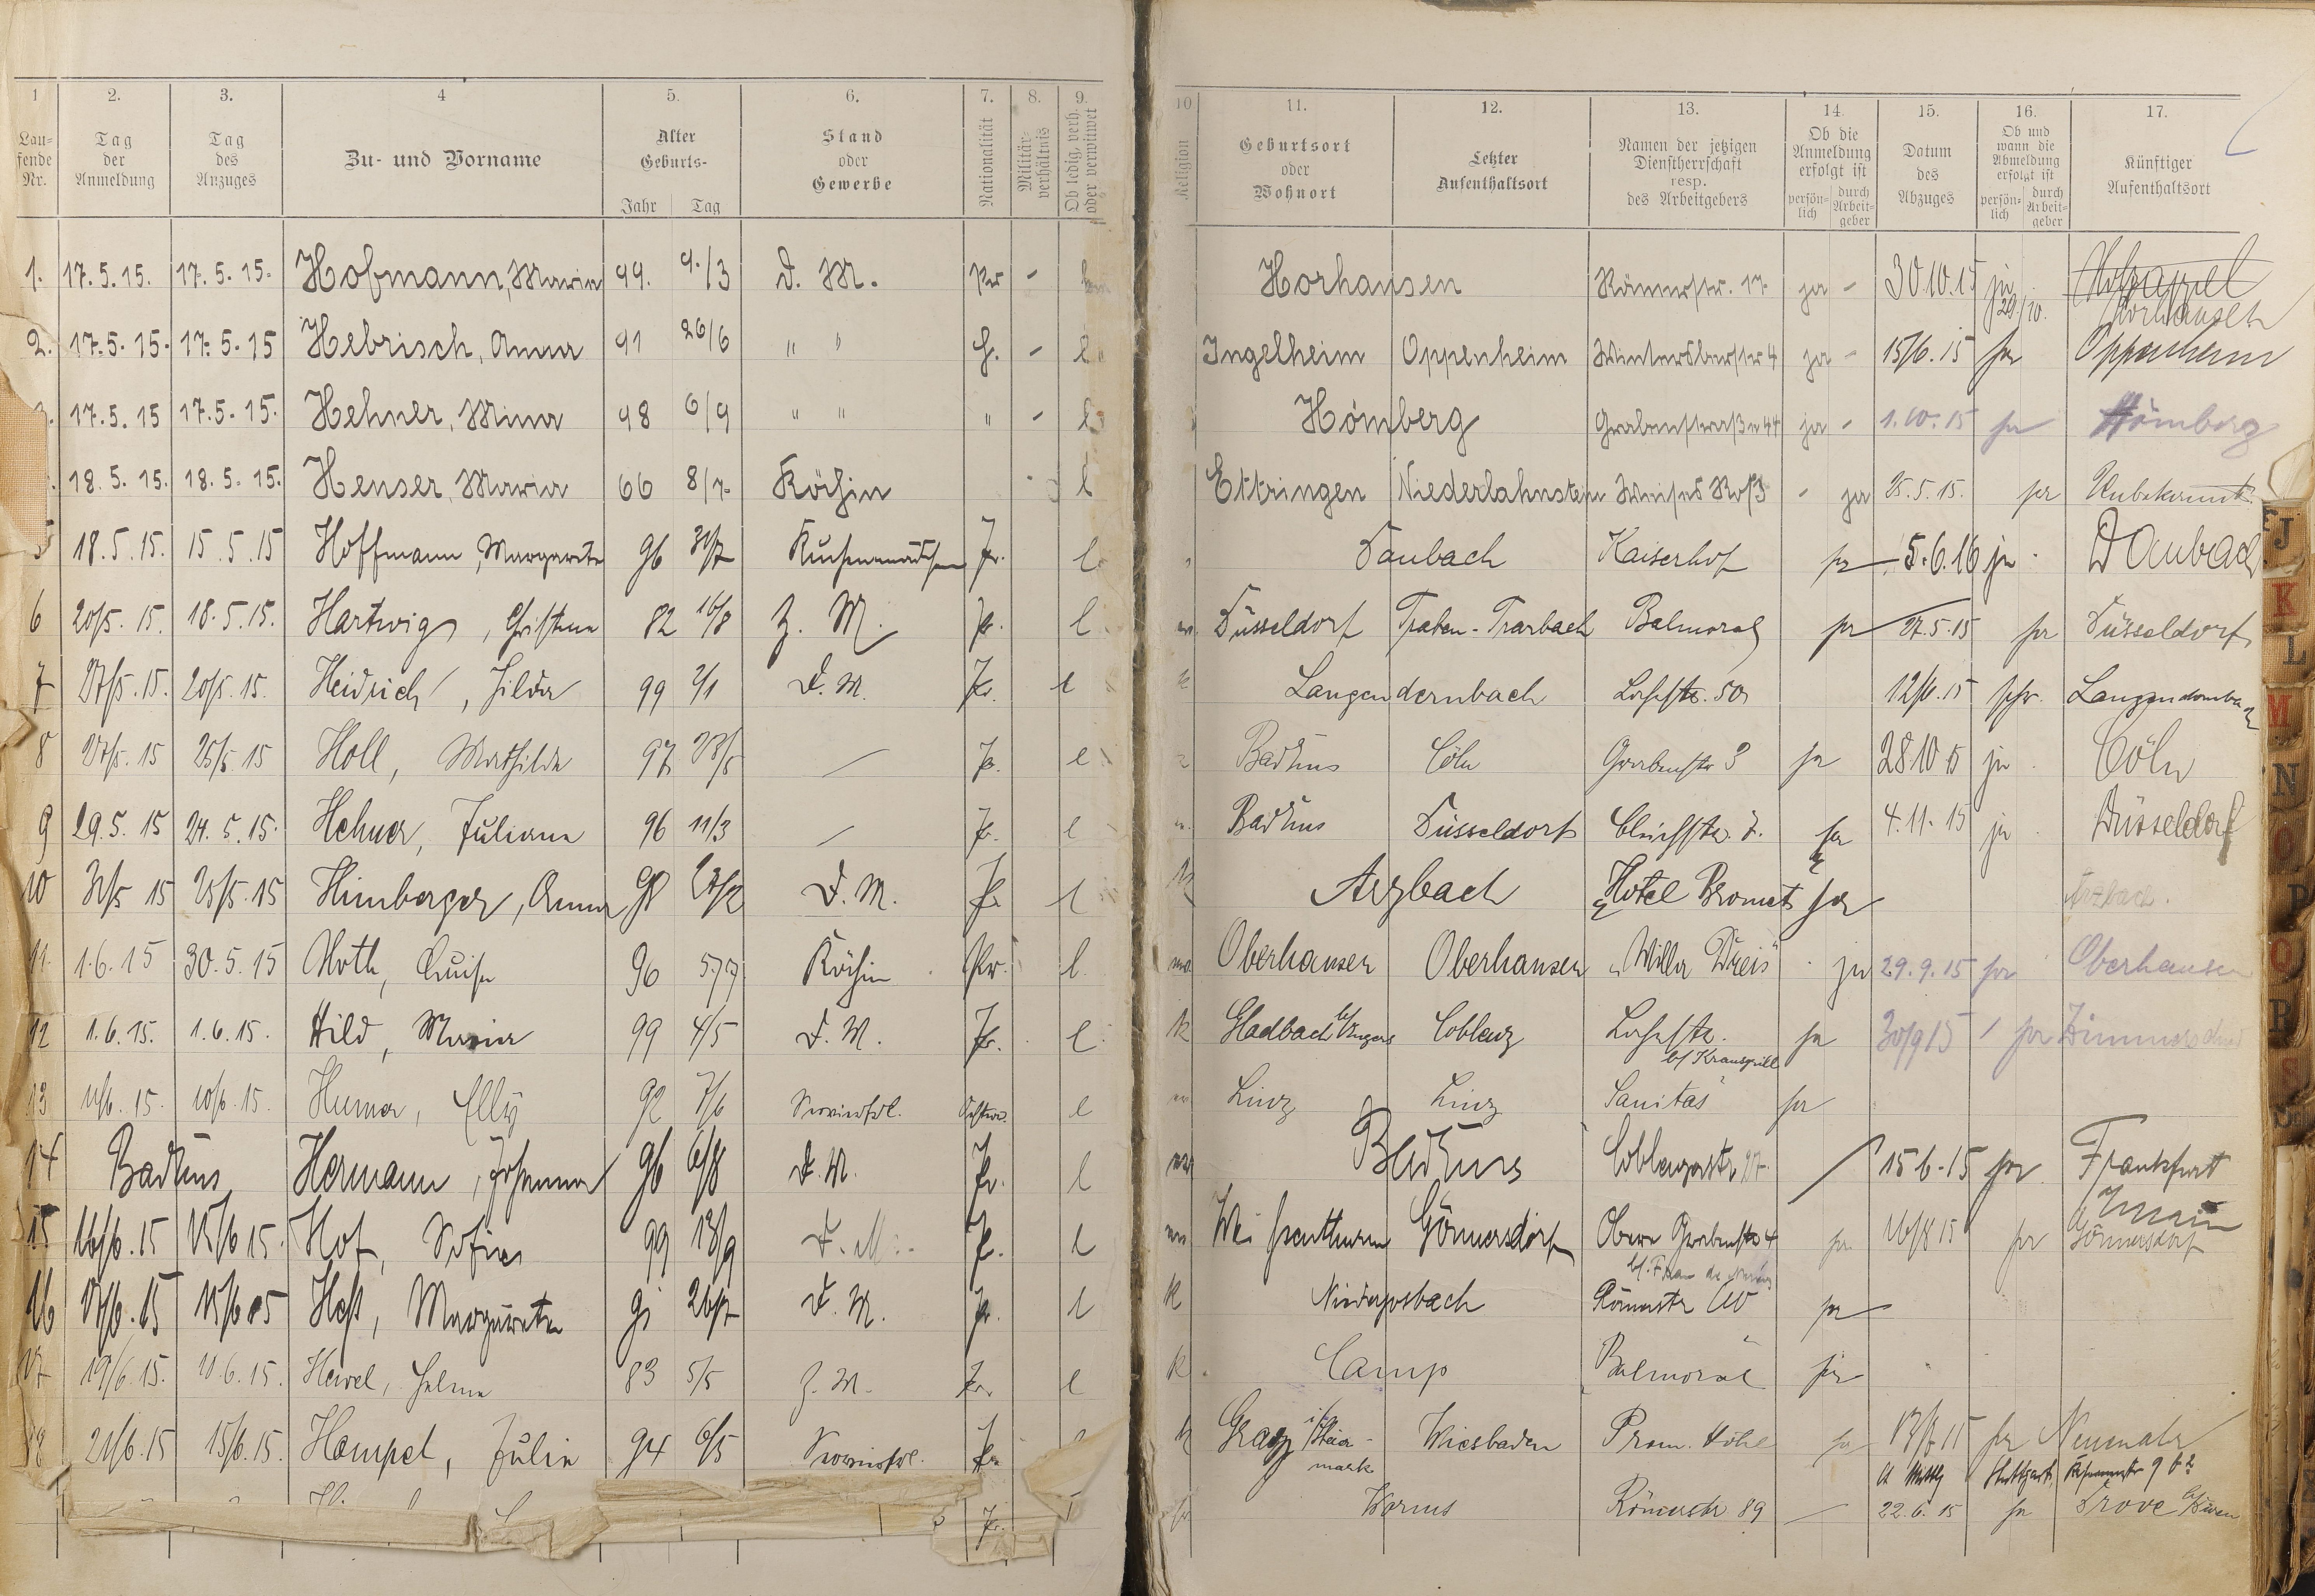 1 2. 3. 4 5. 6. 7. 8. 9. 10 11. 12. 13. 14. 15. 16. 17.
Lau-fende Nr. Tag der Anmeldung Tag des Anzuges Zu- und Vorname Alter Geburts- Jahr Tag Stand oder Gewerbe Nationalität Militär-verhältnis Ob ledig, verh. oder verwitwet Religion Geburtsort oder Wohnort Letzter Aufenthaltsort Namen der jetzigen Dienstherrschaft resp. des Arbeitgebers Ob die Anmeldung erfolgt ist persön-lich durch Arbeit-geber Datum des Abzuges Ob und wann die Abmeldung erfolgt ist persön-lich durch Arbeit-geber Künftiger Aufenthaltsort
1. 17.5.15. 17.5.15. Hofmann, Maria 99. 9./3 D. M. Pr - Horhausen Römerstr. 17. ja - 30.10.15 ja 29./10. Horhausen
2. 17.5.15. 17.5.15 Hebrisch, Anna 91 26/6 " " H. - l Ingelheim Oppenheim Wintersbergstr 4 ja - 15/6.15 ja Oppenheim
17.5.15 17.5.15. Hehner, Mina 98 6/9 " " " - l Hömberg Grabenstraße 44 ja - 1.10.15 ja Hömberg
18.5.15. 18.5.15. Henser, Maria 66 8/7. Köchin l Ettringen Niederlahnstein Weißes Roß - ja 25.5.15. ja Unbekannt
5 18.5.15. 15.5.15 Hoffmann, Margarete 96 31/7 Küchenmädchen Pr. l Daubach Kaiserhof ja 5.6.16 ja Daubach
6 20/5.15. 18.5.15. Hartwig, Christine 82 16/8 Z. M. Pr. l Düsseldorf Traben-Trarbach Balmoral ja 27.5.15 ja Düsseldorf
7 27/5.15. 20/5.15. Heidrich, Hilda 99 2/1 D. M. Pr. l k Langendernbach Lahnstr. 50 12/6.15 Langendernbach
8 27/5.15 25/5.15 Holl, Mathilde 97 23/5 Pr. l BadEms Cöln Grabenstr 3 ja 28.10.15 ja Cöln
9 29.5.15 24.5.15. Hehner, Juliane 96 11/3 Pr. l BadEms Düsseldorf Bleichstr. 7. ja 4.11.15 ja Düsseldorf
10 31/5 15 25/5.15 Himberger, Anna 98 D. M. Pr l k Arzbach Hotel Bromet ja Arzbach.
11. 1.6.15 30.5.15 Hoth, Luise 96 5/7 Köchin Pr. l. Oberhausen Oberhausen "Villa Dreis" ja 29.9.15 ja Oberhausen
12 1.6.15. 1.6.15. Hild, Maria 99 4/5 D. M. Pr. l k Gladbach b/Engers Coblenz Lahnstr. b/ Krausgrill ja 30/9 15 ja Zimmerschied
13 11/6.15. 10/6.15. Humer, Elly 92 7/6 Servierfrl. l Linz Linz Sanitas ja
14 BadEms Hermann, Johanna 96 6/8 D. M. Pr. l BadEms Coblenzerstr 97. 15 6.15 ja Frankfurt Main
15 16/6.15 15/6 15. Hof, Sofie 99 18/9 D. M. Pr. l Weißenthurm Gönnersdorf Obere Grabenstr 4 ja 16/8 15 ja Gönnersdorf
16 17/6.15 15/6 15 Heß, Margarete 91 26/7 D. M. Pr. l k Niederjosbach Römerstr 60 ja
17 19/6.15. 11.6.15. Hewel, Helma 83 5/5 Z. M. Pr. l k. Camp Balmoral ja
18 21/6.15 15/6.15. Hampel, Julie 94 6/5 Servierfrl. Pr k Graz i/ Steier-mark Wiesbaden Prom. Hotel ja 13/7 15 ja Neuenahr
Pr. Worms Römerstr 89 22.6.15 ja Drove b/ Düren
J
K
L
M
N
O
P
Q
R
S